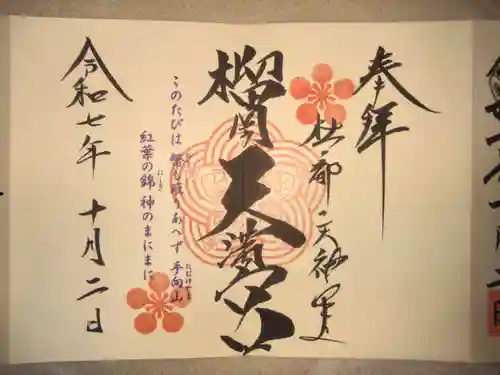 奉拝
杜都之天神
榴岡天満宮
このたびは 幣も取りあへず 手向山
紅葉の錦 神のまにまに
令和七年 十月二日